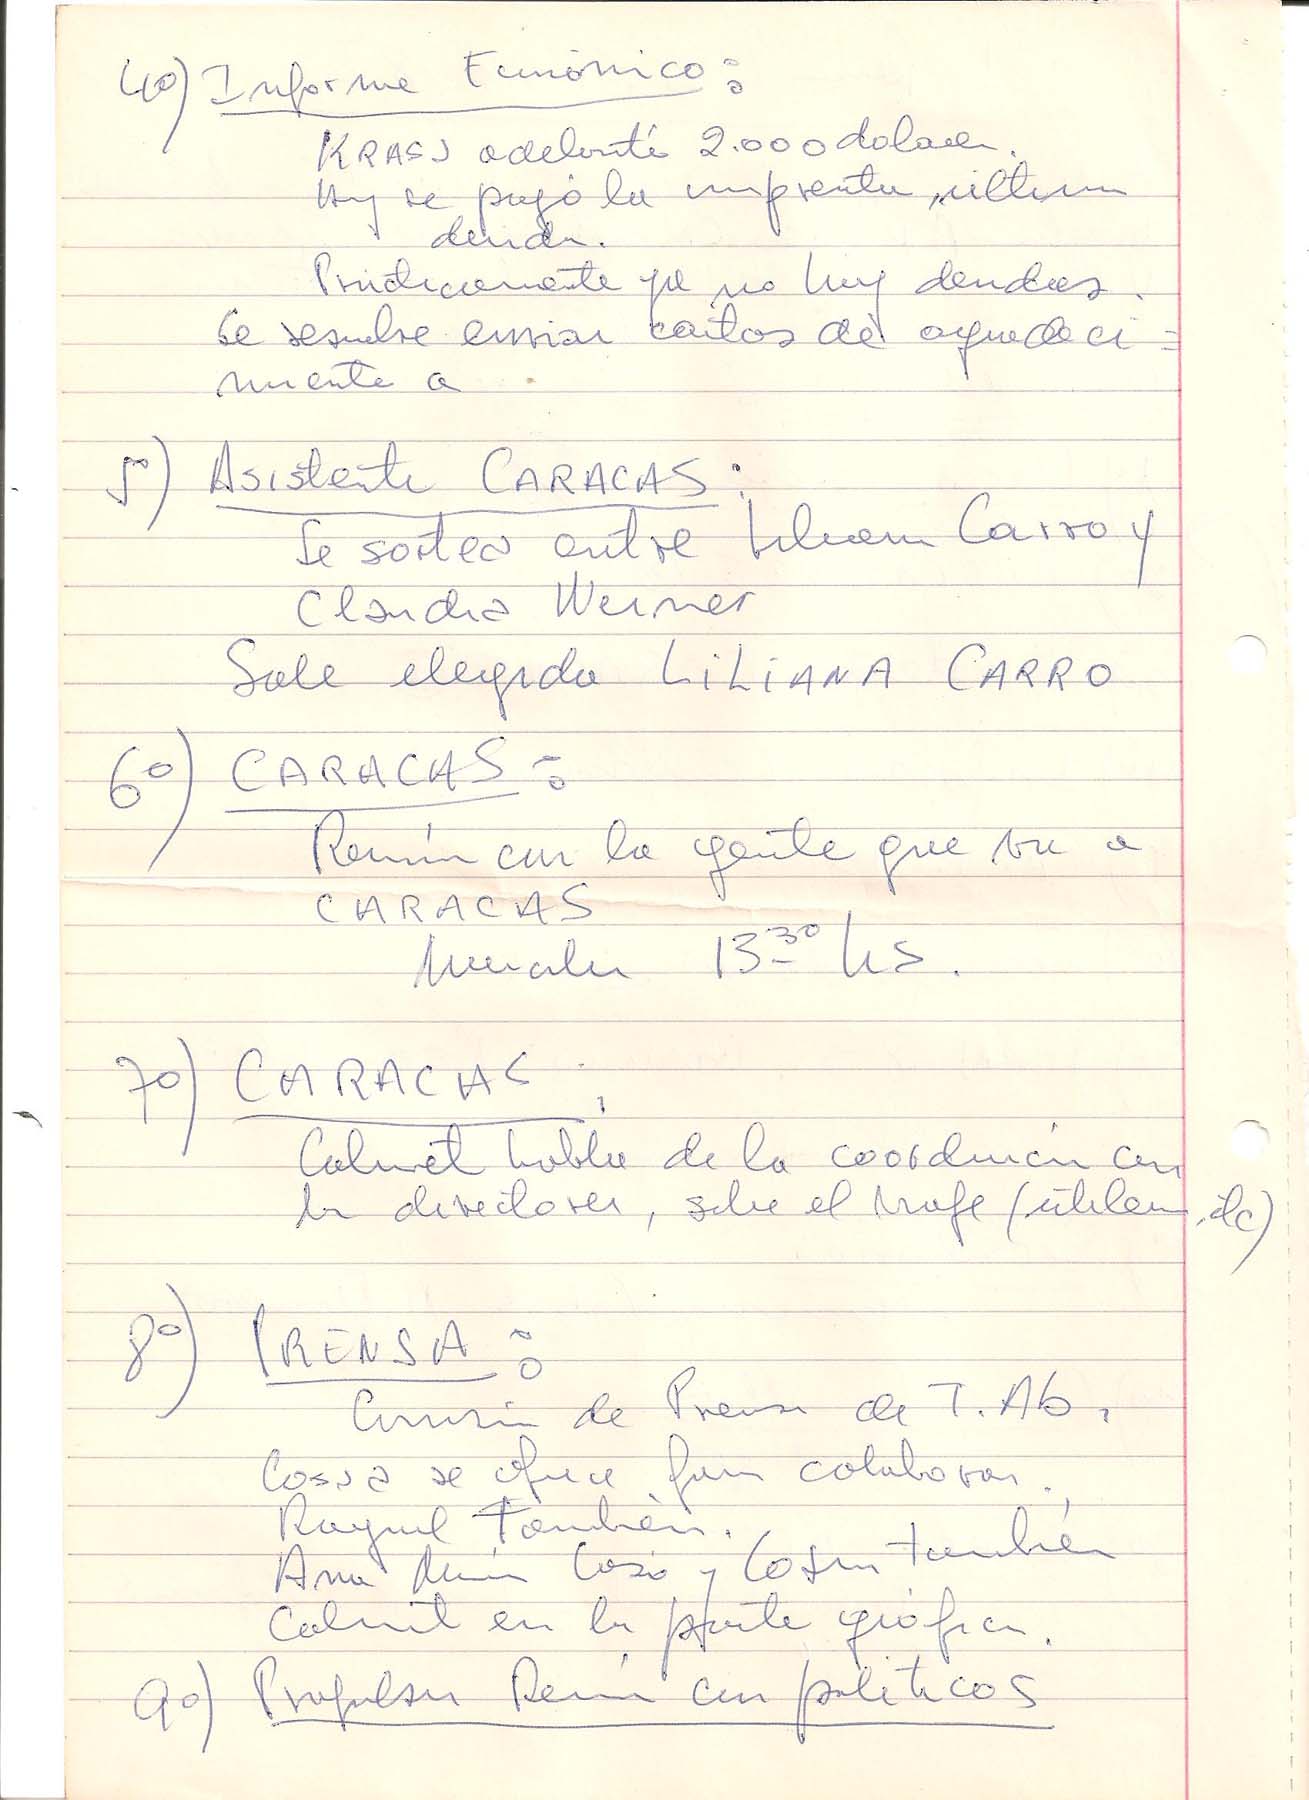 4o) Informe Económico:
KRASS adelantó 2.000 dolares.
Hoy se pagó la imprenta, última
deuda.
Prácticamente ya no hay deudas.
Se resuelve enviar cartas de agradeci=
miento a
5º) Asistente CARACAS:
Se sortea entre Liliana Carro y
Claudia Weiner
Sale elegida LiLiANA CARRO
6º) CARACAS:
Reunión con la gente que va a
CARACAS
13 30 hs.
7o) CARACAS:
Calmet habla de la coordinación con
los directores, sobre el viaje (utilería, etc)
8º) PRENSA:
Comisión de Prensa de T. Ab.
Cossa se ofrece para colaborar.
Raquel También.
Ana María Casó y también
Calmet en la parte gráfica.
9o) Propulsar Reunión con políticos